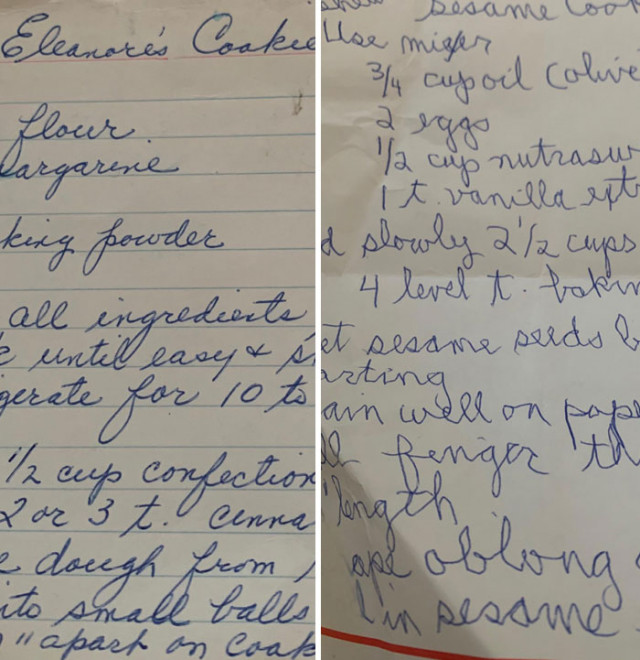 Eleanore's Cookie
flour
argarine
king powder
all ingredients
until easy &
gerate for 10 to
1/2 cup confection
2 or 3 t. cinna
e dough from
ito small balls
" apart on cook
sesame Cook
Use mixer
3/4 cup oil (olive
2 eggs
1/2 cup nutrasw
1 t. vanilla ext
d slowly 2 1/2 cups
4 level t. bakin
et sesame seeds b
arting
ain well on pape
finger th
length
ape oblong
l in sesame